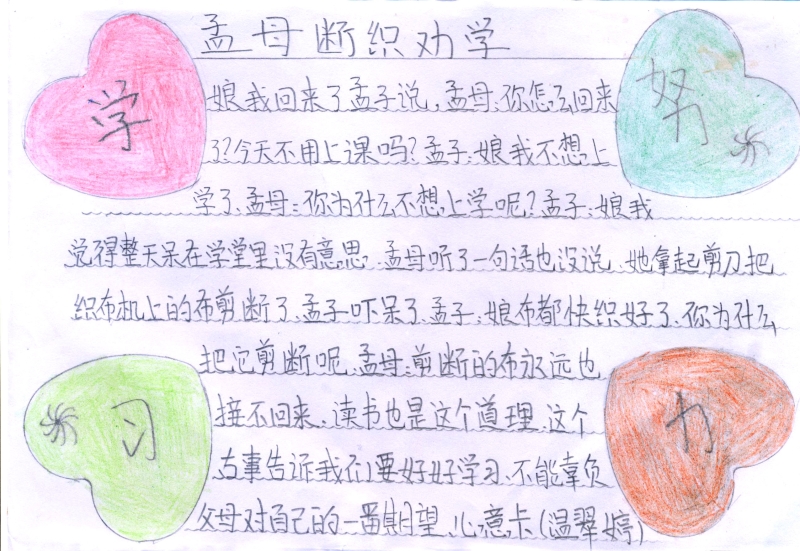 孟母断织劝学
学
努力
娘我回来了孟子说,孟母:你怎么回来
了?今天不用上课吗?孟子:娘我不想上
学了、孟母:你为什么不想上学呢?孟子:娘我
觉得整天呆在学堂里没有意思、孟母听了一句话也没说、她拿起剪刀把
织布机上的布剪断了、孟子吓呆了、孟子:娘布都快织好了、你为什么
把它剪断呢、孟母:剪断的布永远也
接不回来、读书也是这个道理、这个
古事告诉我们要好好学习、不能辜负
父母对自己的一番期望、心意卡(温翠婷)
习
力